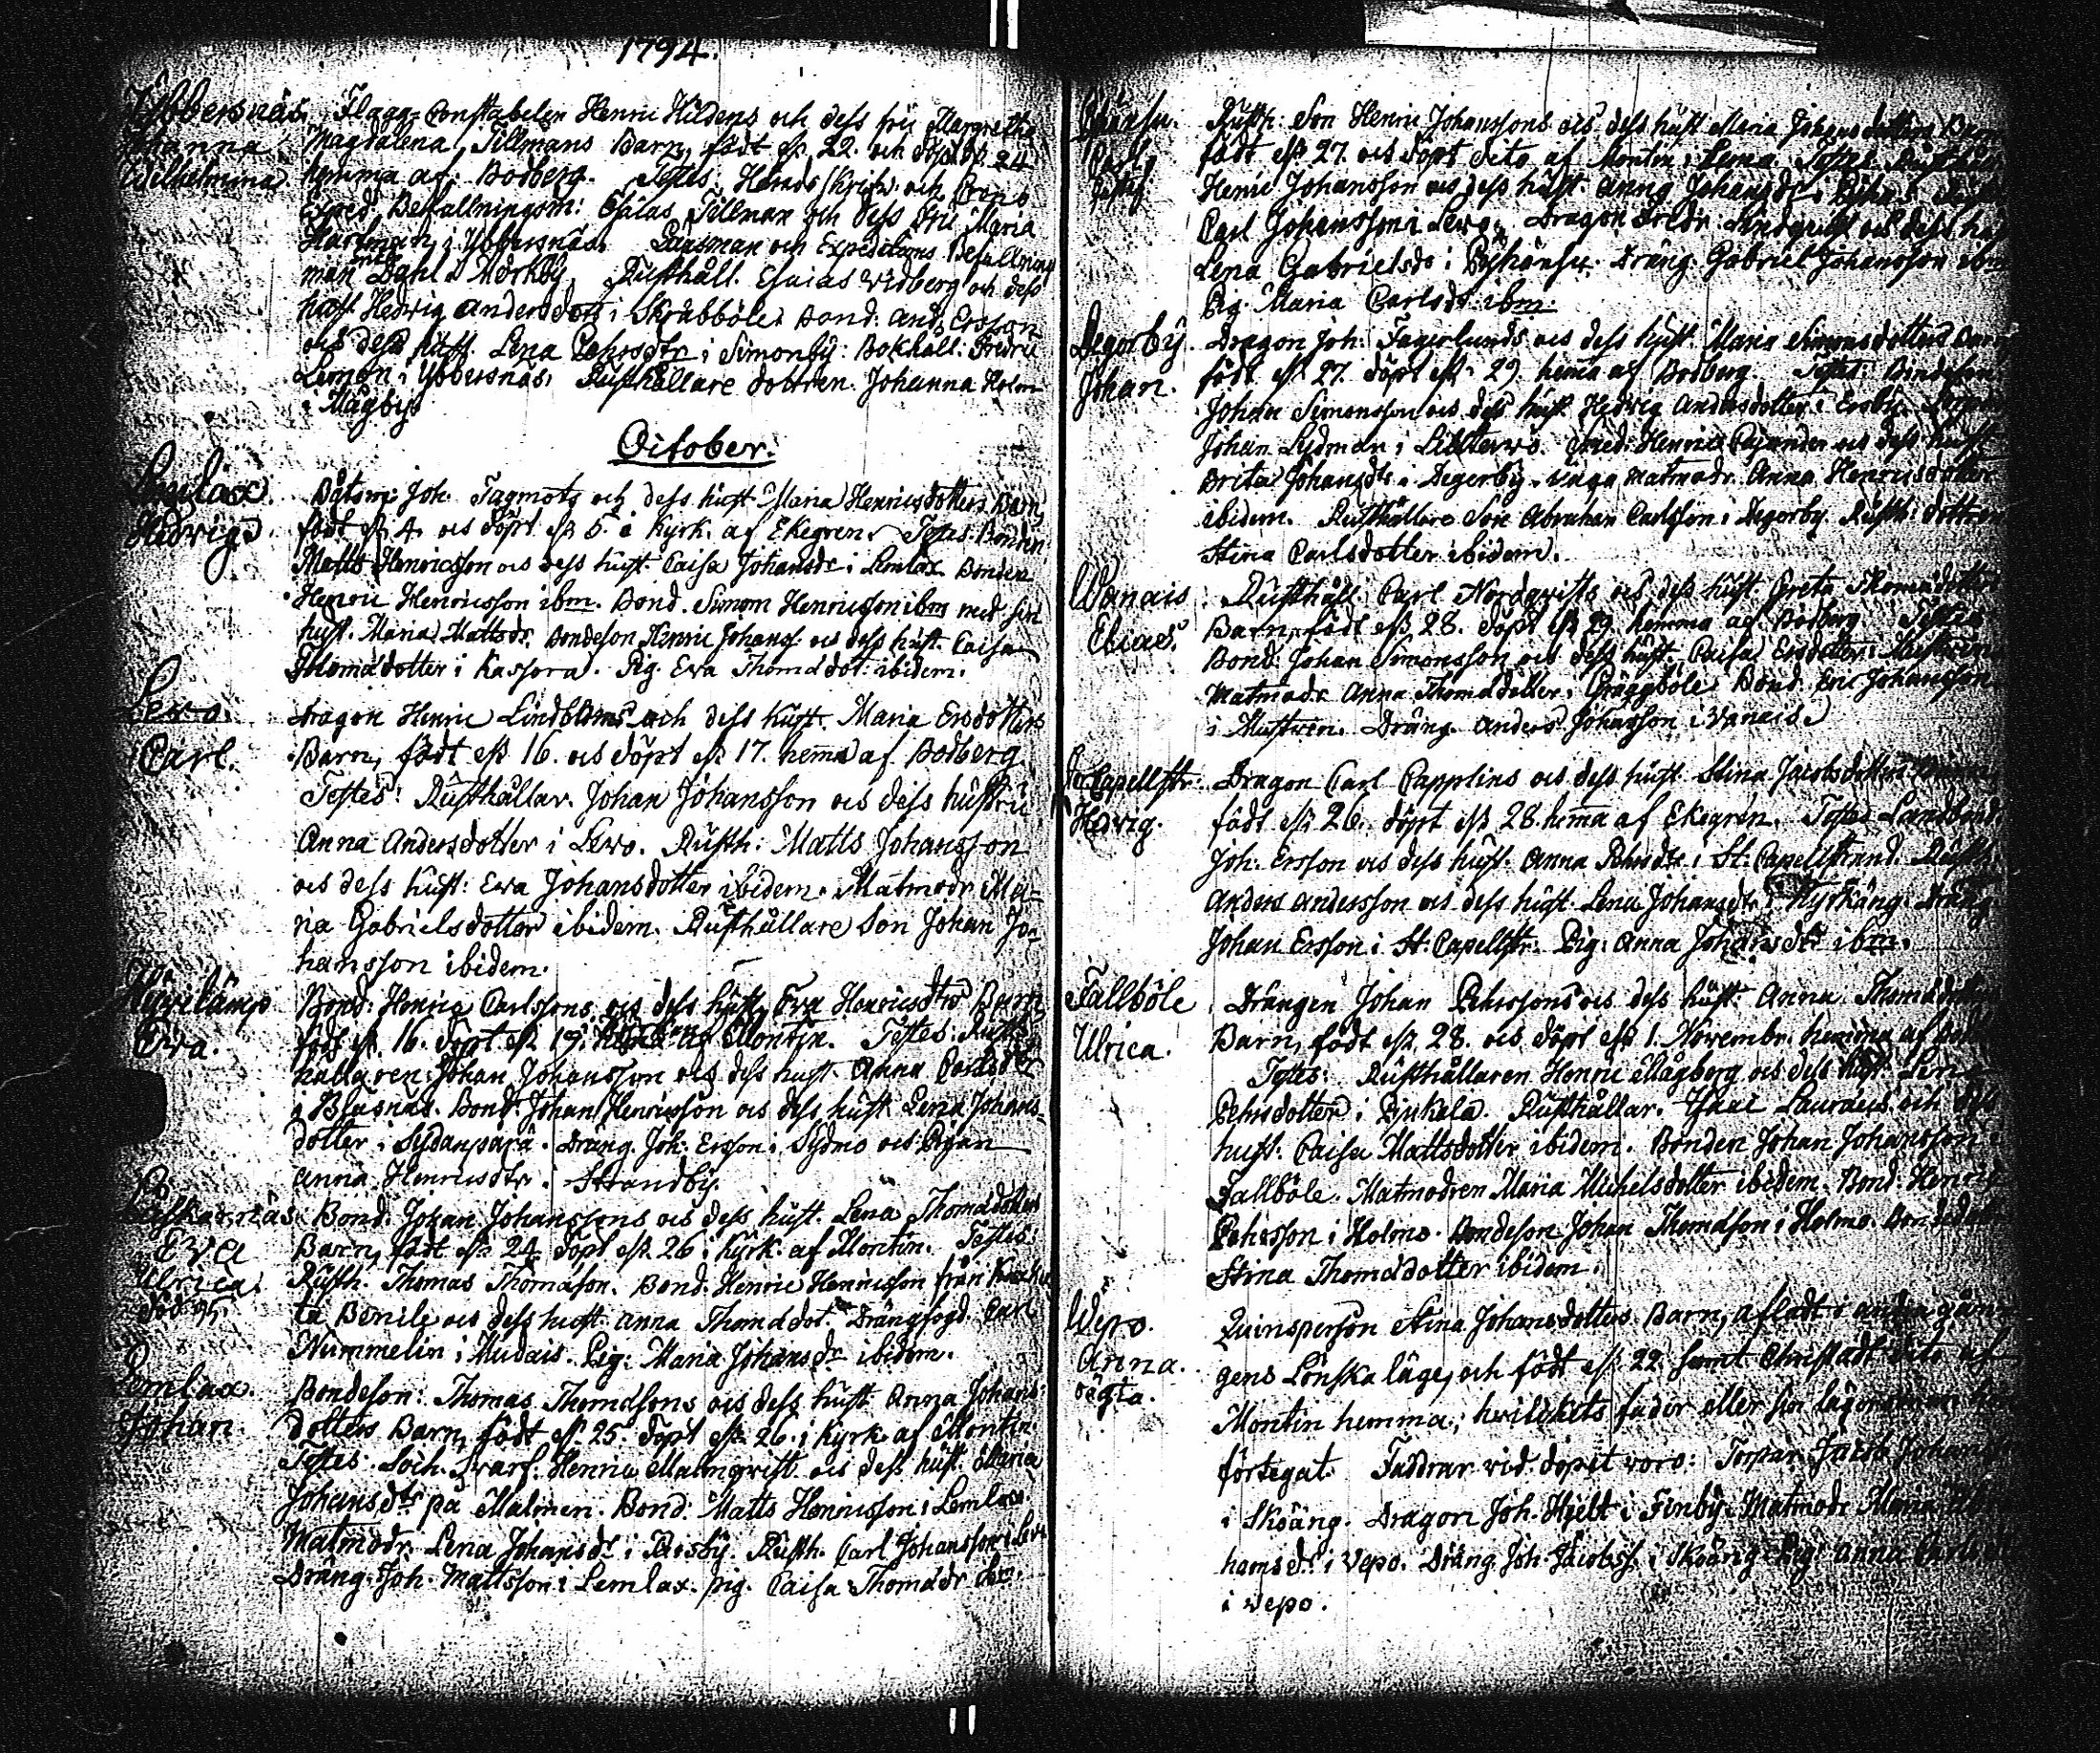 1794.
Ybbersnäs. Flagg-Constabelen Henric Hildens och dess fru Margretha
Johanna Magdalena Tillmans Barn, födt d. 22. och döpt d. 24
Wilhelmina hemma af Bodberg. Testes: Härads skrifv. och
Befallningsm: Esaias Tillman och dess Fru Maria
Hartman i Ybbersnäs. och Expeditions Befallnings
man Dahl i Mörkby, Rusthåll. Esaias Widberg och dess
hust. Hedvig Andersdotr i Skräbböle. Bond: And: Ersson
ocs dess hust. Lena Pehrsdtr i Simonby: Bokhåll: Fredric
Leman i Ybbersnäs, Rusthållare dottren Johanna Holm
i Mågby.
October.
Båtsm: Joh. Tagmots och dess hust. Maria Henricsdotters Barn,
Hedvig. födt d. 4. ocs döpt d. 5. i Kyrk. af Ekegren. Testes: Bonden
Matts Henricsson ocs dess hust. Caisa Johansdr i Lemlax Bonden
Henric Henricsson ibm. Bond. Simon Henricsson ibm med sin
hust. Maria Mattsdr. Bondeson Henric Johanss. ocs dess hust. Caisa
Thomasdotter i Kassora. Pig. Eva Thomasdot: ibidem.
Levo. Dragon Henric Lindbloms och dess hust. Maria Ersdotters
Carl. Barn, födt d. 16. ocs döpt d. 17. hemma af Bodberg
Testes: Rusthållar. Johan Johansson ocs dess hustru
Anna Andersdotter i Levo. Rusth: Matts Johansson
ocs dess hust: Eva Johansdotter ibidem. Matmodr Ma-
ria Gabrielsdotter ibidem. Rusthållare Son Johan Jo-
hansson ibidem.
Bond: Henric Carlssons ocs dess hust. Eva Henricsdtrs Barn
Eva. födt d. 16. döpt d. 19. af Montin. Testes: Rust-
hållaren Johan Johansson ocs dess hust. Anna Carlsdtr
i Blåsnäs. Bond: Johan Henricsson ocs dess hust. Lena Johans-
dotter i Sydänperä. Dräng. Joh: Ersson i Sydmo ocs Pigan
Anna Henricsdtr i Strandby.
Bond: Johan Johanssons ocs dess hust. Lena Thomasdotters
Eva Barn, födt d. 24. döpt d. 26. i Kyrk. af Montin. Testes:
Ulrica Rusth. Thomas Thomasson. Bond. Henric Henricsson från
ta Benils ocs dess hust. Anna Thomasdot. Drängfogd. Carl
Nummelin i Mudais. Pig: Maria Johansdr ibidem.
Lemlax. Bondeson: Thomas Thomassons ocs dess hust Anna Johans-
Johan. dotters Barn, födt d. 25. döpt d. 26. i Kyrk. af Montin
Testes: Sock. Svarf. Henric Malmqvist ocs dess hust. Maria
Johansdtr på Malmen. Bond: Matts Henricsson i Lemlax.
Matmodr. Lena Johansdr i Rosby. Rusth. Carl Johansson i Levo
Dräng. Joh. Mattsson i Lemlax. Pig. Caisa Thomasdr ibm.
Rusth: Son Henric Johanssons ocs dess hust Maria Johansdotters Barn
födt d. 27. ocs döpt dito af Montin i Testes:
Henric Johansson ocs dess hust. Anna Johansdr i
Carl Johansson i Levo, Dragon Fredr: Lindqvist ocs dess
Lena Gabrielsdr i Dräng. Gabriel Johansson ibm
Pig. Maria Carlsdtr ibm.
Degerby. Dragon Joh: Fagerlunds ocs dess hust. Maria Simonsdotters Barn
Johan. födt d. 27. döpt d. 29. hemma af Bodberg. Testes: Bondeson
Johan Simonsson ocs dess hust. Hedvig Andersdotter i Ersby.
Johan Lydman i Smed: Henric ocs dess hust
Brita Johansdtr i Degerby. Matmodr. Anna Henricsdotter
ibidem. Rusthållare Son Abraham Carlsson i Degerby Rusth: dottren
Stina Carlsdotter ibidem.
Wanais Rusthåll: Carl Nordqvists ocs dess hust. Greta Thomasdotters
Elias. Barn, födt d. 28. döpt d. 29. hemma af Bodberg Testes
Bond: Johan Simonsson ocs dess hust. Caisa Ersdotter i
Matmodr. Anna Thomasdotter, Gräggböle Bond. Eric Johansson
i Mustwen. Dräng. Anders Johansson i Vanais.
Capellstr: Dragon Carl Papplins ocs dess hust. Stina Jacobsdotters
Hedvig. födt d. 26. döpt d. 28. hemma af Ekegren. Testes Landbond.
Joh. Ersson ocs dess hust. Anna Pehrsdtr i St: Capellstrand. Rusth.
Anders Andersson ocs dess hust. Lena Johansdtr i Kyrkäng. Dräng
Johan Ersson i St: Capellstr. Pig: Anna Johansdtr ibm.
Fallböle Drängen Johan Pehrssons ocs dess hust. Anna Thomasdotters
Ulrica. Barn, födt d. 28. ocs döpt d. 1. Novembr. hemma af
Testes: Rusthållaren Henric Mågberg ocs dess hust. Lena
Pehrsdotter i Pjukala. Rusthållar. Isaac Lauraeus och dess
hust. Caisa Mattsdotter ibidem. Bonden Johan Johansson
Fallböle. Matmodren Maria Michelsdotter ibidem. Bond. Henric
Pehrsson i Holmo. Bondeson Johan Thomasson i Holmo.
Stina Thomasdotter ibidem.
Wepo. Quinsperson Stina Johansdotters Barn, afladt i andra gån-
Anna. gens Lönska läge, och födt d. 22 samt Christnadt dito af
oägta. Montin hemma; hvilckets fader eller sin lägersman hon
förtegat. Faddrar vid döpet voro: Torpar. Jacob
i Skoäng. Dragon Joh. Hjelt i Finby. Matmodr. Maria
hansdr. i Vepo. Dräng. Joh. Jacobss. i Skoäng. Pig: Anna
i Vepo.